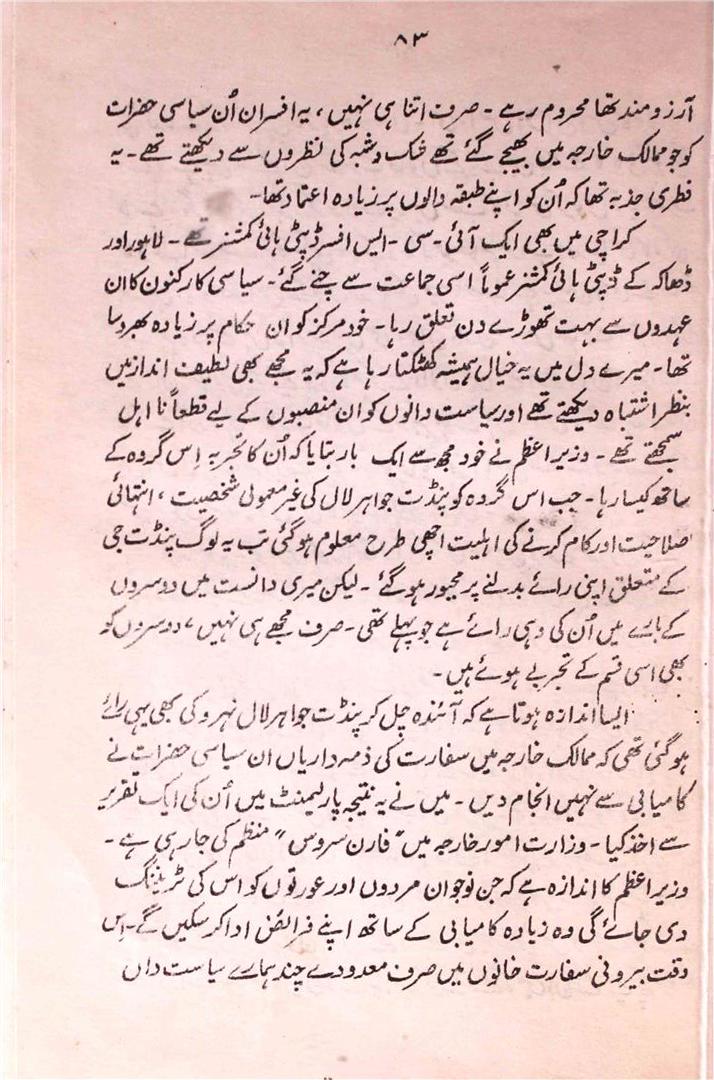 ۸۳
آرزومند تھا محروم رہے ۔ صرف اتنا ہی نہیں ، یہ افسران اُن سیاسی حضرات
کو جو ممالک خارجہ میں بھیجے گئے تھے شک و شبہ کی نظروں سے دیکھتے تھے ۔ یہ
فطری جذبہ تھا کہ اُن کو اپنے طبقہ والوں پر زیادہ اعتماد تھا ۔
کراچی میں بھی ایک آئی ۔ سی ۔ ایس افسر ڈپٹی ہائی کمشنر تھے ۔ لاہور اور
ڈھاکہ کے ڈپٹی ہائی کمشنر عموماً اسی جماعت سے چنے گئے ۔ سیاسی کارکنون کا ان
عہدوں سے بہت تھوڑے دن تعلق رہا ۔ خود مرکز کو ان حکام پر زیادہ بھروسا
تھا ۔ میرے دل میں یہ خیال ہمیشہ کھٹکتا رہا ہے کہ یہ مجھے بھی لطیف انداز میں
بنظر اشتباہ دیکھتے تھے اور سیاست دانوں کو ان منصبوں کے لیے قطعاً نا اہل
سمجھتے تھے ۔ وزیر اعظم نے خود مجھ سے ایک بار بتایا کہ اُن کا تجربہ اِس گروہ کے
ساتھ کیسا رہا ۔ جب اس گروہ کو پنڈت جواہر لال کی غیر معمولی شخصیت ، انتہائی
صلاحیت اور کام کرنے کی اہلیت اچھی طرح معلوم ہو گئی تب یہ لوگ پنڈت جی
کے متعلق اپنی رائے بدلنے پر مجبور ہو گئے ۔ لیکن میری دانست میں دوسروں
کے بارے میں اُن کی وہی رائے ہے جو پہلے تھی ۔ صرف مجھے ہی نہیں ، دوسروں کو
بھی اسی قسم کے تجربے ہوئے ہیں ۔
ایسا اندازہ ہوتا ہے کہ آئندہ چل کر پنڈت جواہر لال نہرو کی بھی یہی رائے
ہو گئی تھی کہ ممالک خارجہ میں سفارت کی ذمہ داریاں ان سیاسی حضرات نے
کامیابی سے نہیں انجام دیں ۔ میں نے یہ نتیجہ پارلیمنٹ میں اُن کی ایک تقریر
سے اخذ کیا ۔ وزارت امور خارجہ میں "فارن سروس" منظم کی جا رہی ہے ۔
وزیر اعظم کا اندازہ ہے کہ جن نوجوان مردوں اور عورتوں کو اس کی ٹریننگ
دی جائے گی وہ زیادہ کامیابی کے ساتھ اپنے فرائض ادا کر سکیں گے ۔ اِس
وقت بیرونی سفارت خانوں میں صرف معدودے چند ہمارے سیاست داں